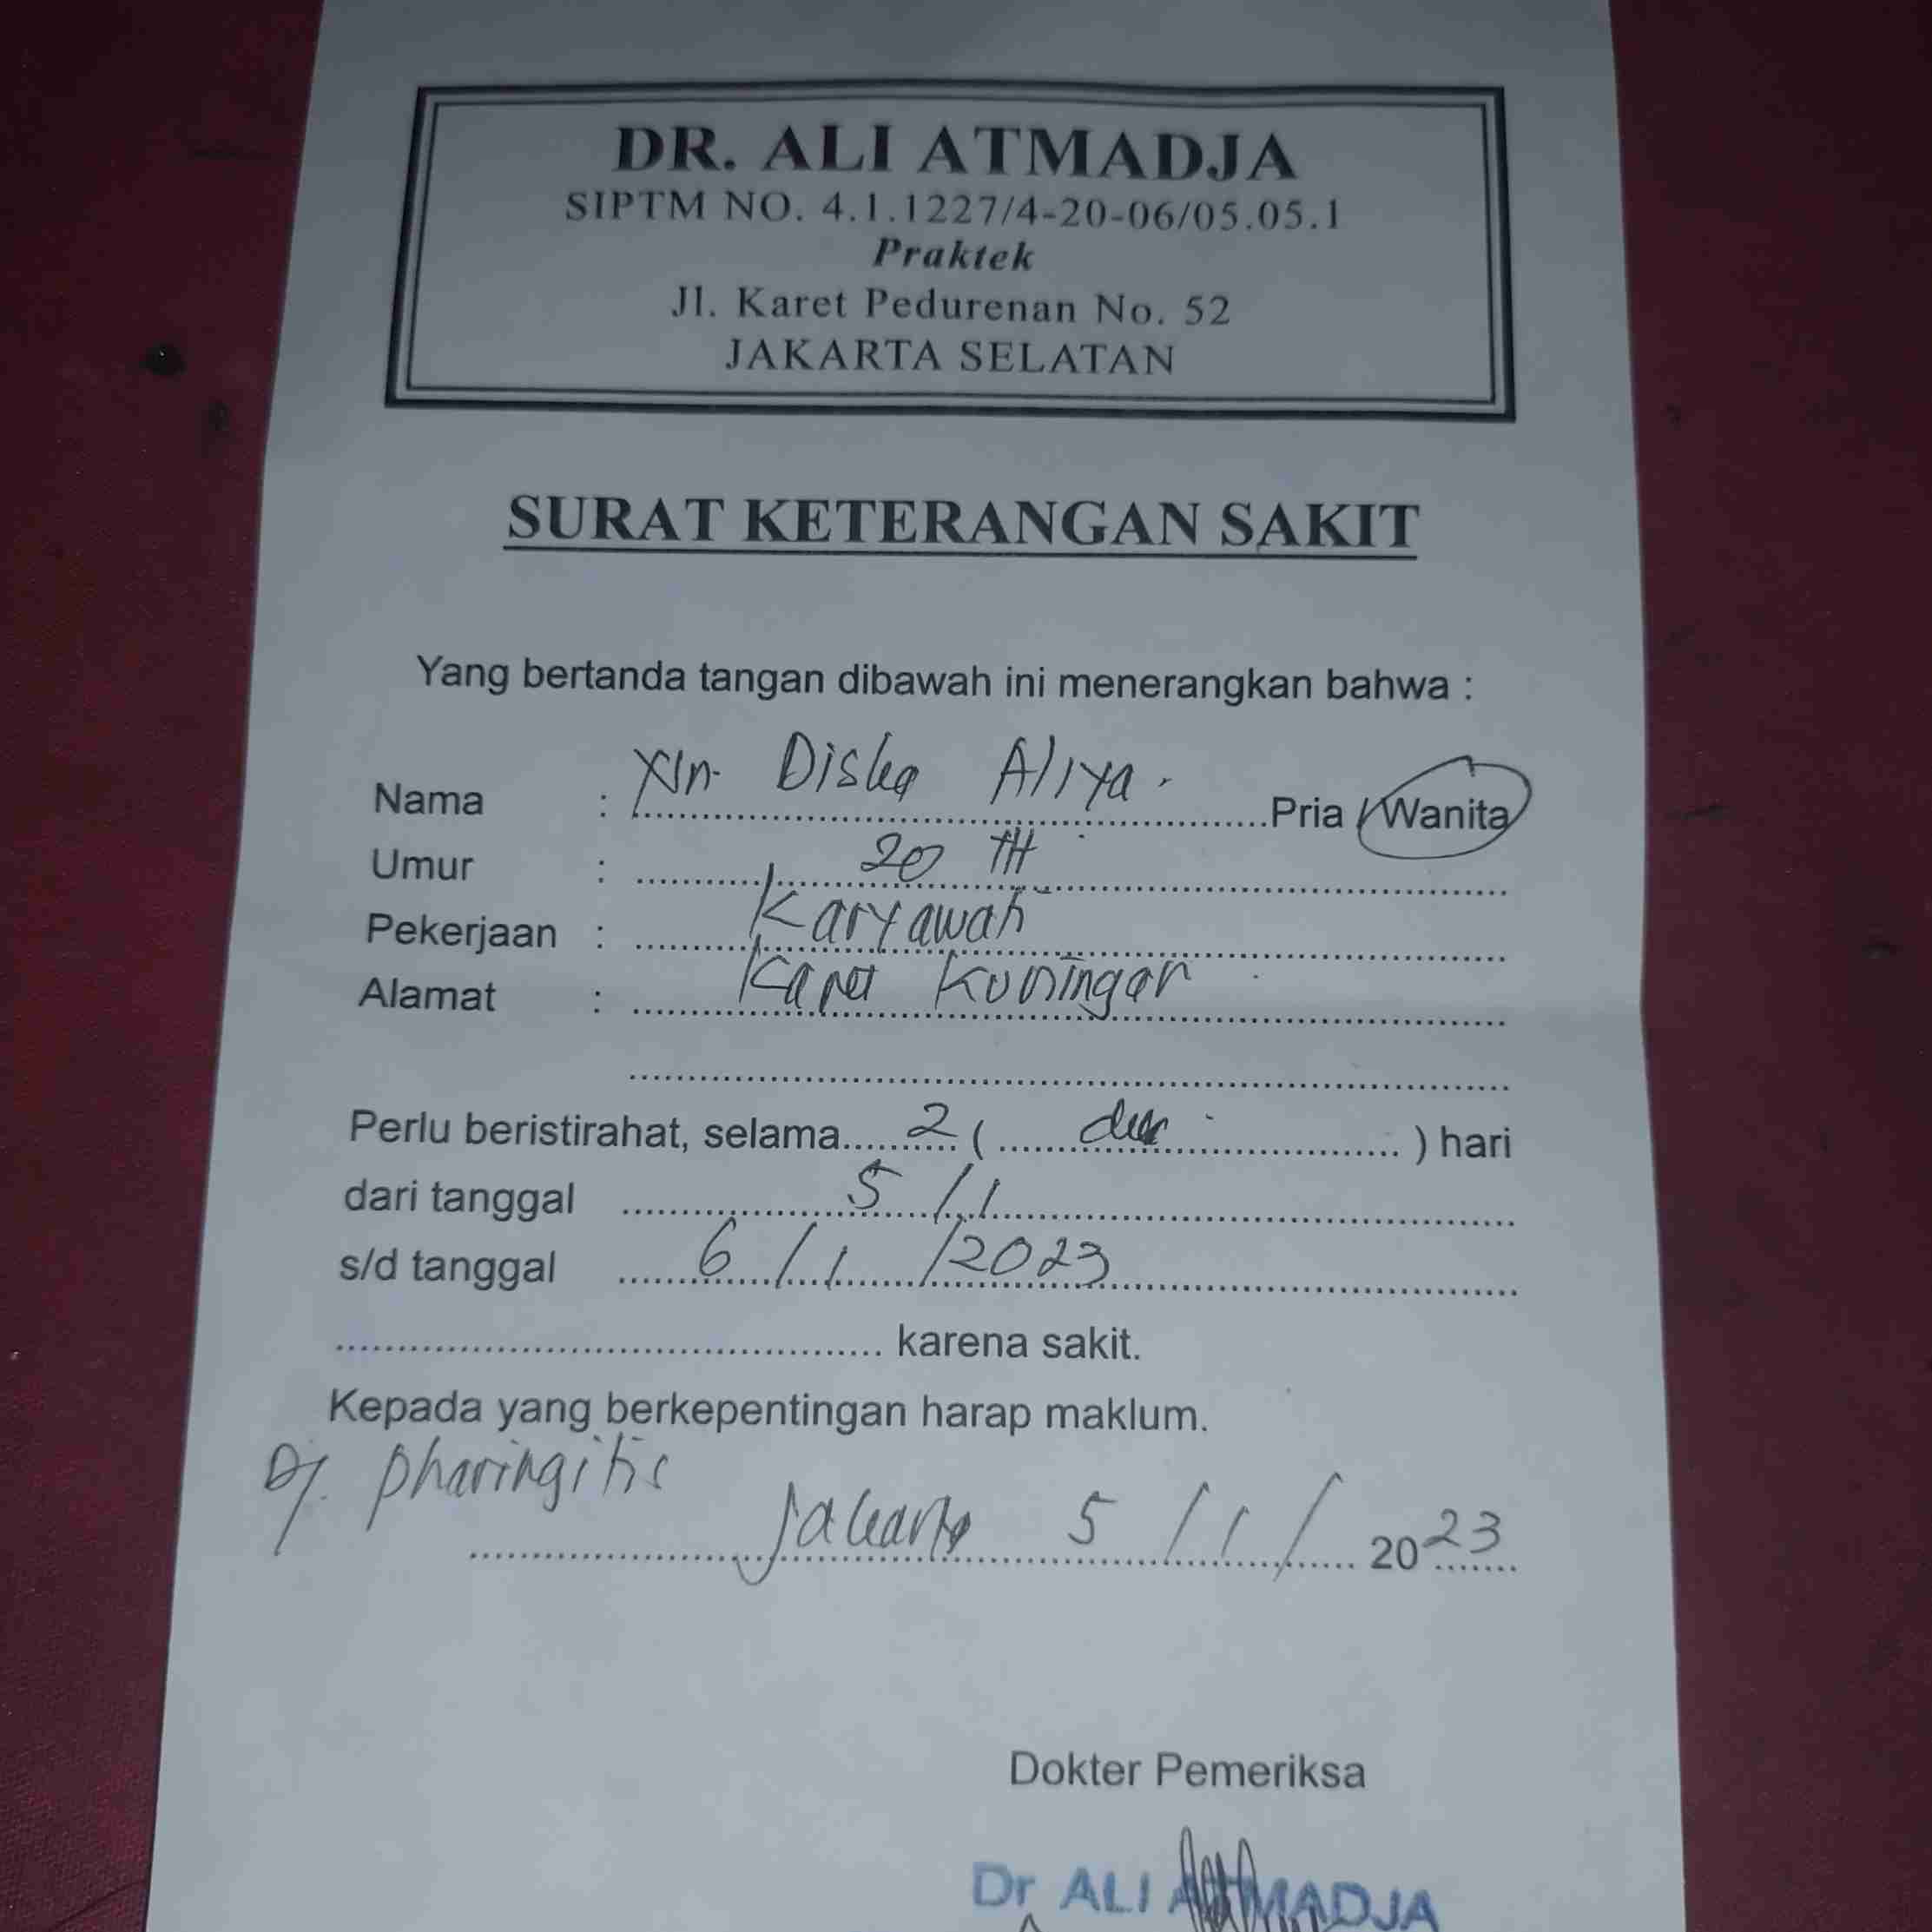 DR. ALI ATMADJA
SIPTM NO. 4.1.1227/4-20-06/05.05.1
Praktek
Jl. Karet Pedurenan No. 52
JAKARTA SELATAN
SURAT KETERANGAN SAKIT
Yang bertanda tangan dibawah ini menerangkan bahwa :
Nama : Diska Aliya. Pria / Wanita
Umur : 20 TH
Pekerjaan : Karyawan
Alamat : Karet Kuningan
Perlu beristirahat, selama 2 ( dua ) hari
dari tanggal 5/1
s/d tanggal 6/1/2023
karena sakit.
Kepada yang berkepentingan harap maklum.
D/. pharingitis
Jakarta 5/1/2023
Dokter Pemeriksa
Dr ALI ATMADJA